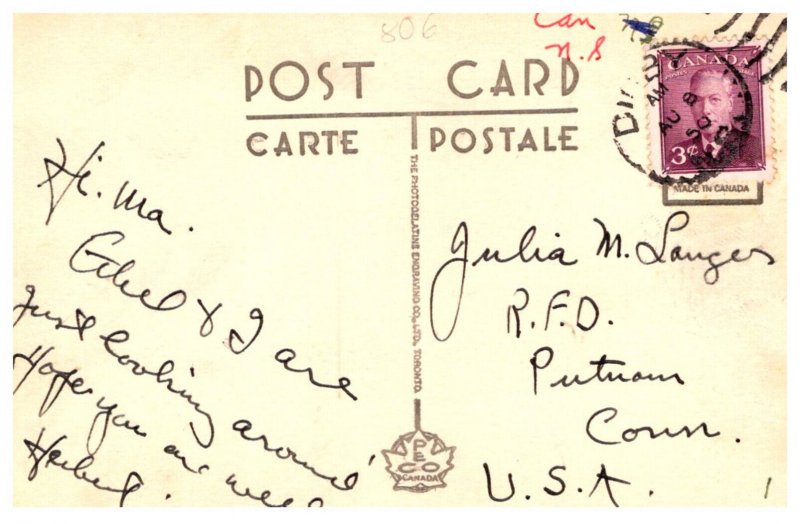 806
Can
N.S
POST CARD
CARTE POSTALE
CANADA
POSTES POSTAGE
3¢
AM
AU 8
50
MADE IN CANADA
THE PHOTOGELATINE ENGRAVING CO., LTD., TORONTO.
PECO
CANADA
Hi. Ma.
Ethel & I are
Just looking around
Hope you are well
Herbert.
Julia M. Langer
R.F.D.
Putnam
Conn.
U.S.A.
1